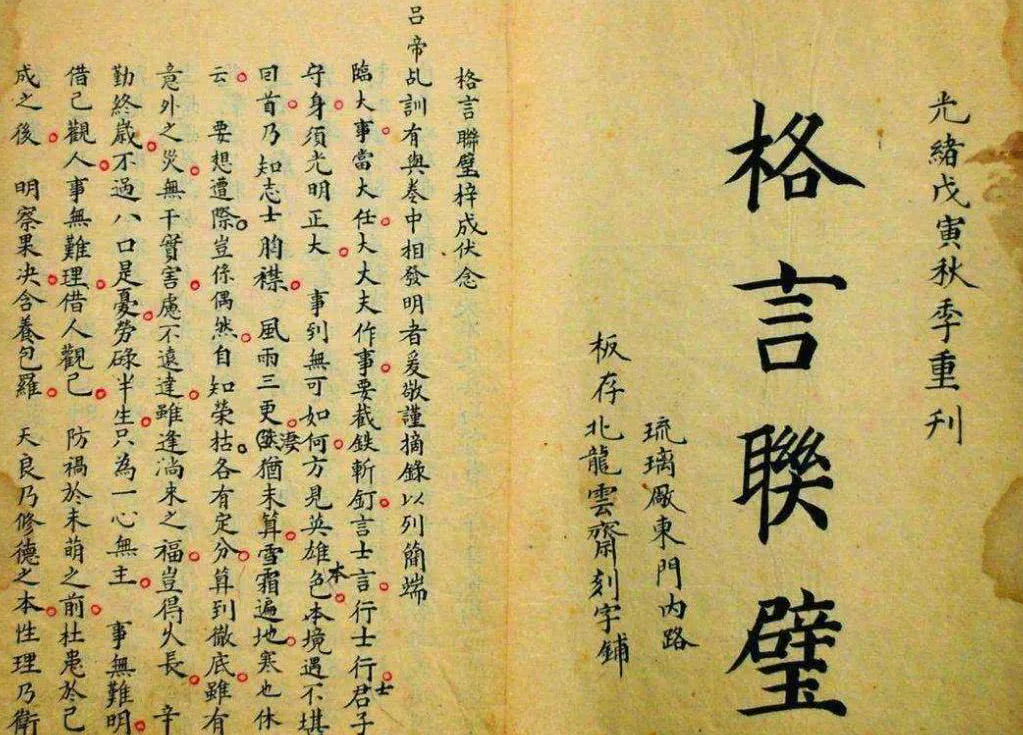 光緒戊寅秋季重刊
格言聯璧
琉璃廠東門內路
板存北龍雲齋刻字鋪
格言聯璧梓成伏念
呂帝乩訓有與卷中相發明者爰敬謹摘錄以列簡端
臨大事當大任大大夫作事要截鉄斬釘言士言行士行士君子
守身須光明正大　事到無可如何方見英雄本色本境遇不堪
回首乃知志士胸襟　風雨三更淒猶未算雪霜遍地寒也休
云　要想遭際豈係偶然自知榮枯各有定分算到徹底雖有
意外之災無干實害慮不遠達雖逢淌來之福豈得久長　辛
勤終歲不過八口是憂勞碌半生只為一心無主　事無難明
借己觀人事無難理借人觀己　防禍於未萌之前杜患於已
成之後　明察果決含養包羅　天良乃修德之本性理乃衛